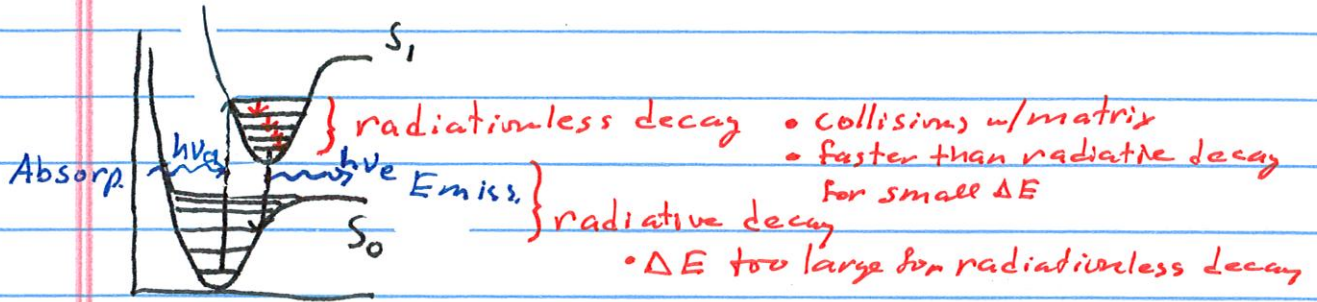 S₁
} radiationless decay • collisions w/matrix
• faster than radiative decay
for small ΔE
Absorp. hνa hνe Emiss.
} radiative decay
S₀
• ΔE too large for radiationless decay